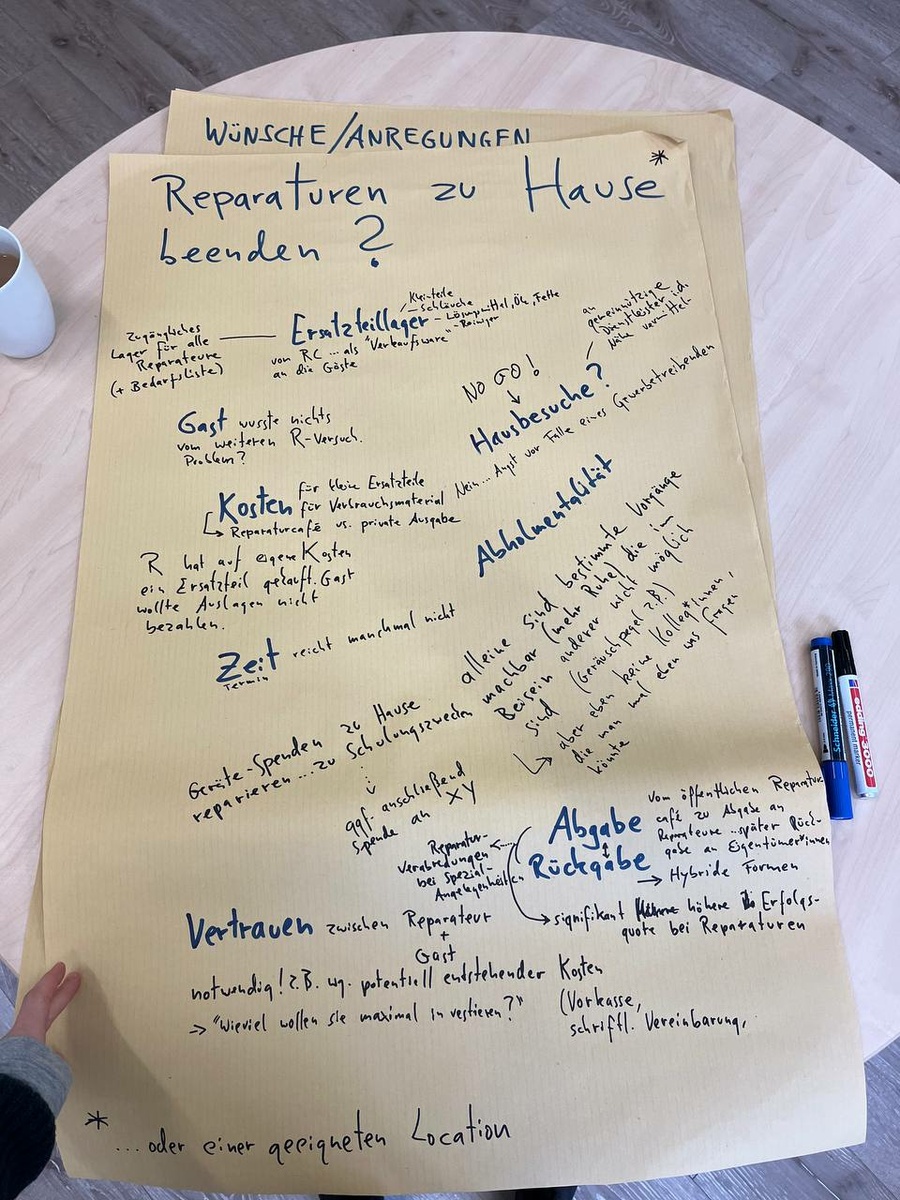 WÜNSCHE/ANREGUNGEN
Reparaturen zu Hause*
beenden?
Zugängliches
Lager für alle
Reparateure
(+ Bedarfsliste)
Kleinteile
Schläuche
Ersatzteillager - Lösungsmittel, Öle, Fette
- Reiniger
von RC ... als "Verkaufsware"
an die Gäste
an
gemeinnützige
Dienstleister in d.
Nähe vermitteln
NO GO!
Hausbesuche?
Nein... Angst vor Falle eines Gewerbetreibenden
Gast wusste nichts
vom weiteren R-Versuch.
Problem?
Kosten für kleine Ersatzteile
für Verbrauchsmaterial
Reparaturcafé vs. private Ausgabe
R hat auf eigene Kosten
ein Ersatzteil gekauft. Gast
wollte Auslagen nicht
bezahlen.
Abholmentalität
Zeit reicht manchmal nicht
Termin
alleine sind bestimmte Vorgänge
machbar (mehr Ruhe) die im
Beisein anderer nicht möglich
sind (Geräuschpegel z.B.)
aber eben keine Kolleg*innen,
die man mal eben was fragen
könnte
Geräte-Spenden zu Hause
reparieren... zu Schulungszwecken
ggf. anschließend
Spende an XY
Abgabe
Rückgabe
vom öffentlichen Reparatur
café zu Abgabe an
Reparateure ... später Rück-
gabe an Eigentümer*innen
→ Hybride Formen
Reparatur-
verabredungen
bei Spezial-
Angelegenheiten
signifikant höhere Erfolgs-
quote bei Reparaturen
Vertrauen zwischen Reparateur
+
Gast
notwendig! z.B. wg. potentiell entstehender Kosten
→ "Wieviel wollen sie maximal investieren?"
(Vorkasse,
schriftl. Vereinbarung,
* ...oder einer geeigneten Location
Schneider
permanent marker
edding 3000